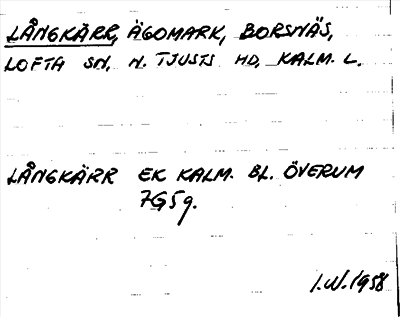 LÅNGKÄRR, ÄGOMARK, BORSNÄS,
LOFTA SN, N. TJUSTS HD, KALM. L.
LÅNGKÄRR EK KALM. BL. ÖVERUM
7G5g.
I.W. 1958